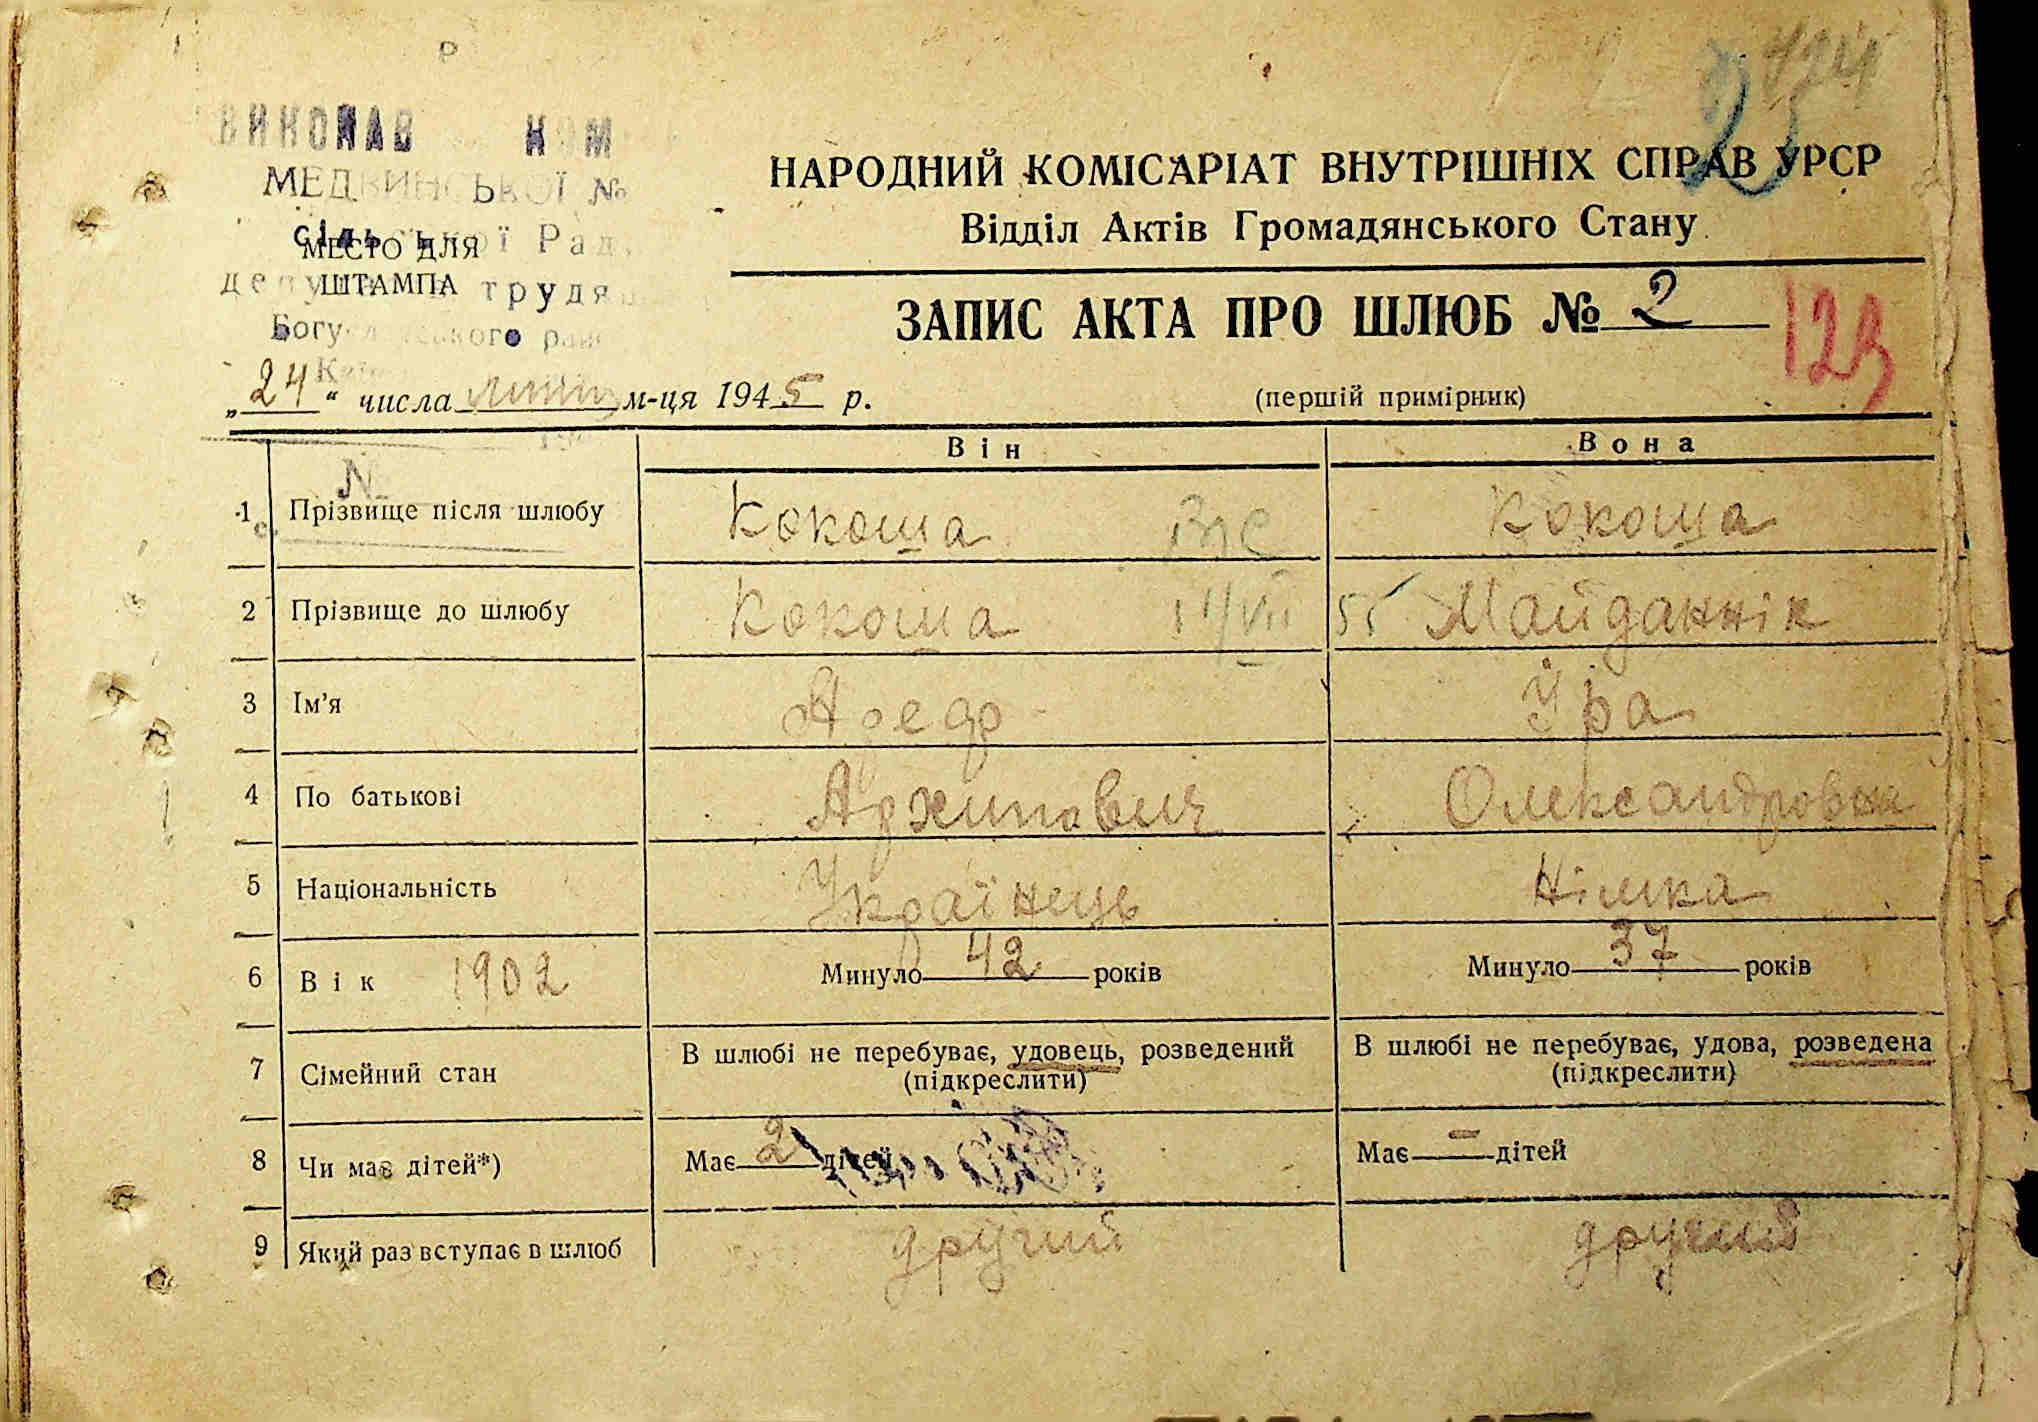 ВИКОНАВ КОМ
МЕДВИНСЬКОЇ №
сільської Рад
МЕСТО ДЛЯ
ШТАМПА
трудя
Богуславського рай
НАРОДНИЙ КОМІСАРІАТ ВНУТРІШНІХ СПРАВ УРСР
Відділ Актів Громадянського Стану
ЗАПИС АКТА ПРО ШЛЮБ № 2
25
123
„24“ числа м-ця 1945 р.
(першій примірник)
Він Вона
1 Прізвище після шлюбу Кокоша Кокоша
2 Прізвище до шлюбу Кокоша 14/VII 55 Майданнік
3 Ім'я Ура
4 По батькові Архипович Олександровна
5 Національність Українець Німка
6 Вік 1902 Минуло 42 років Минуло 37 років
7 Сімейний стан В шлюбі не перебуває, удовець, розведений (підкреслити) В шлюбі не перебуває, удова, розведена (підкреслити)
8 Чи має дітей*) Має 2 дітей Має — дітей
9 Який раз вступає в шлюб другий другий